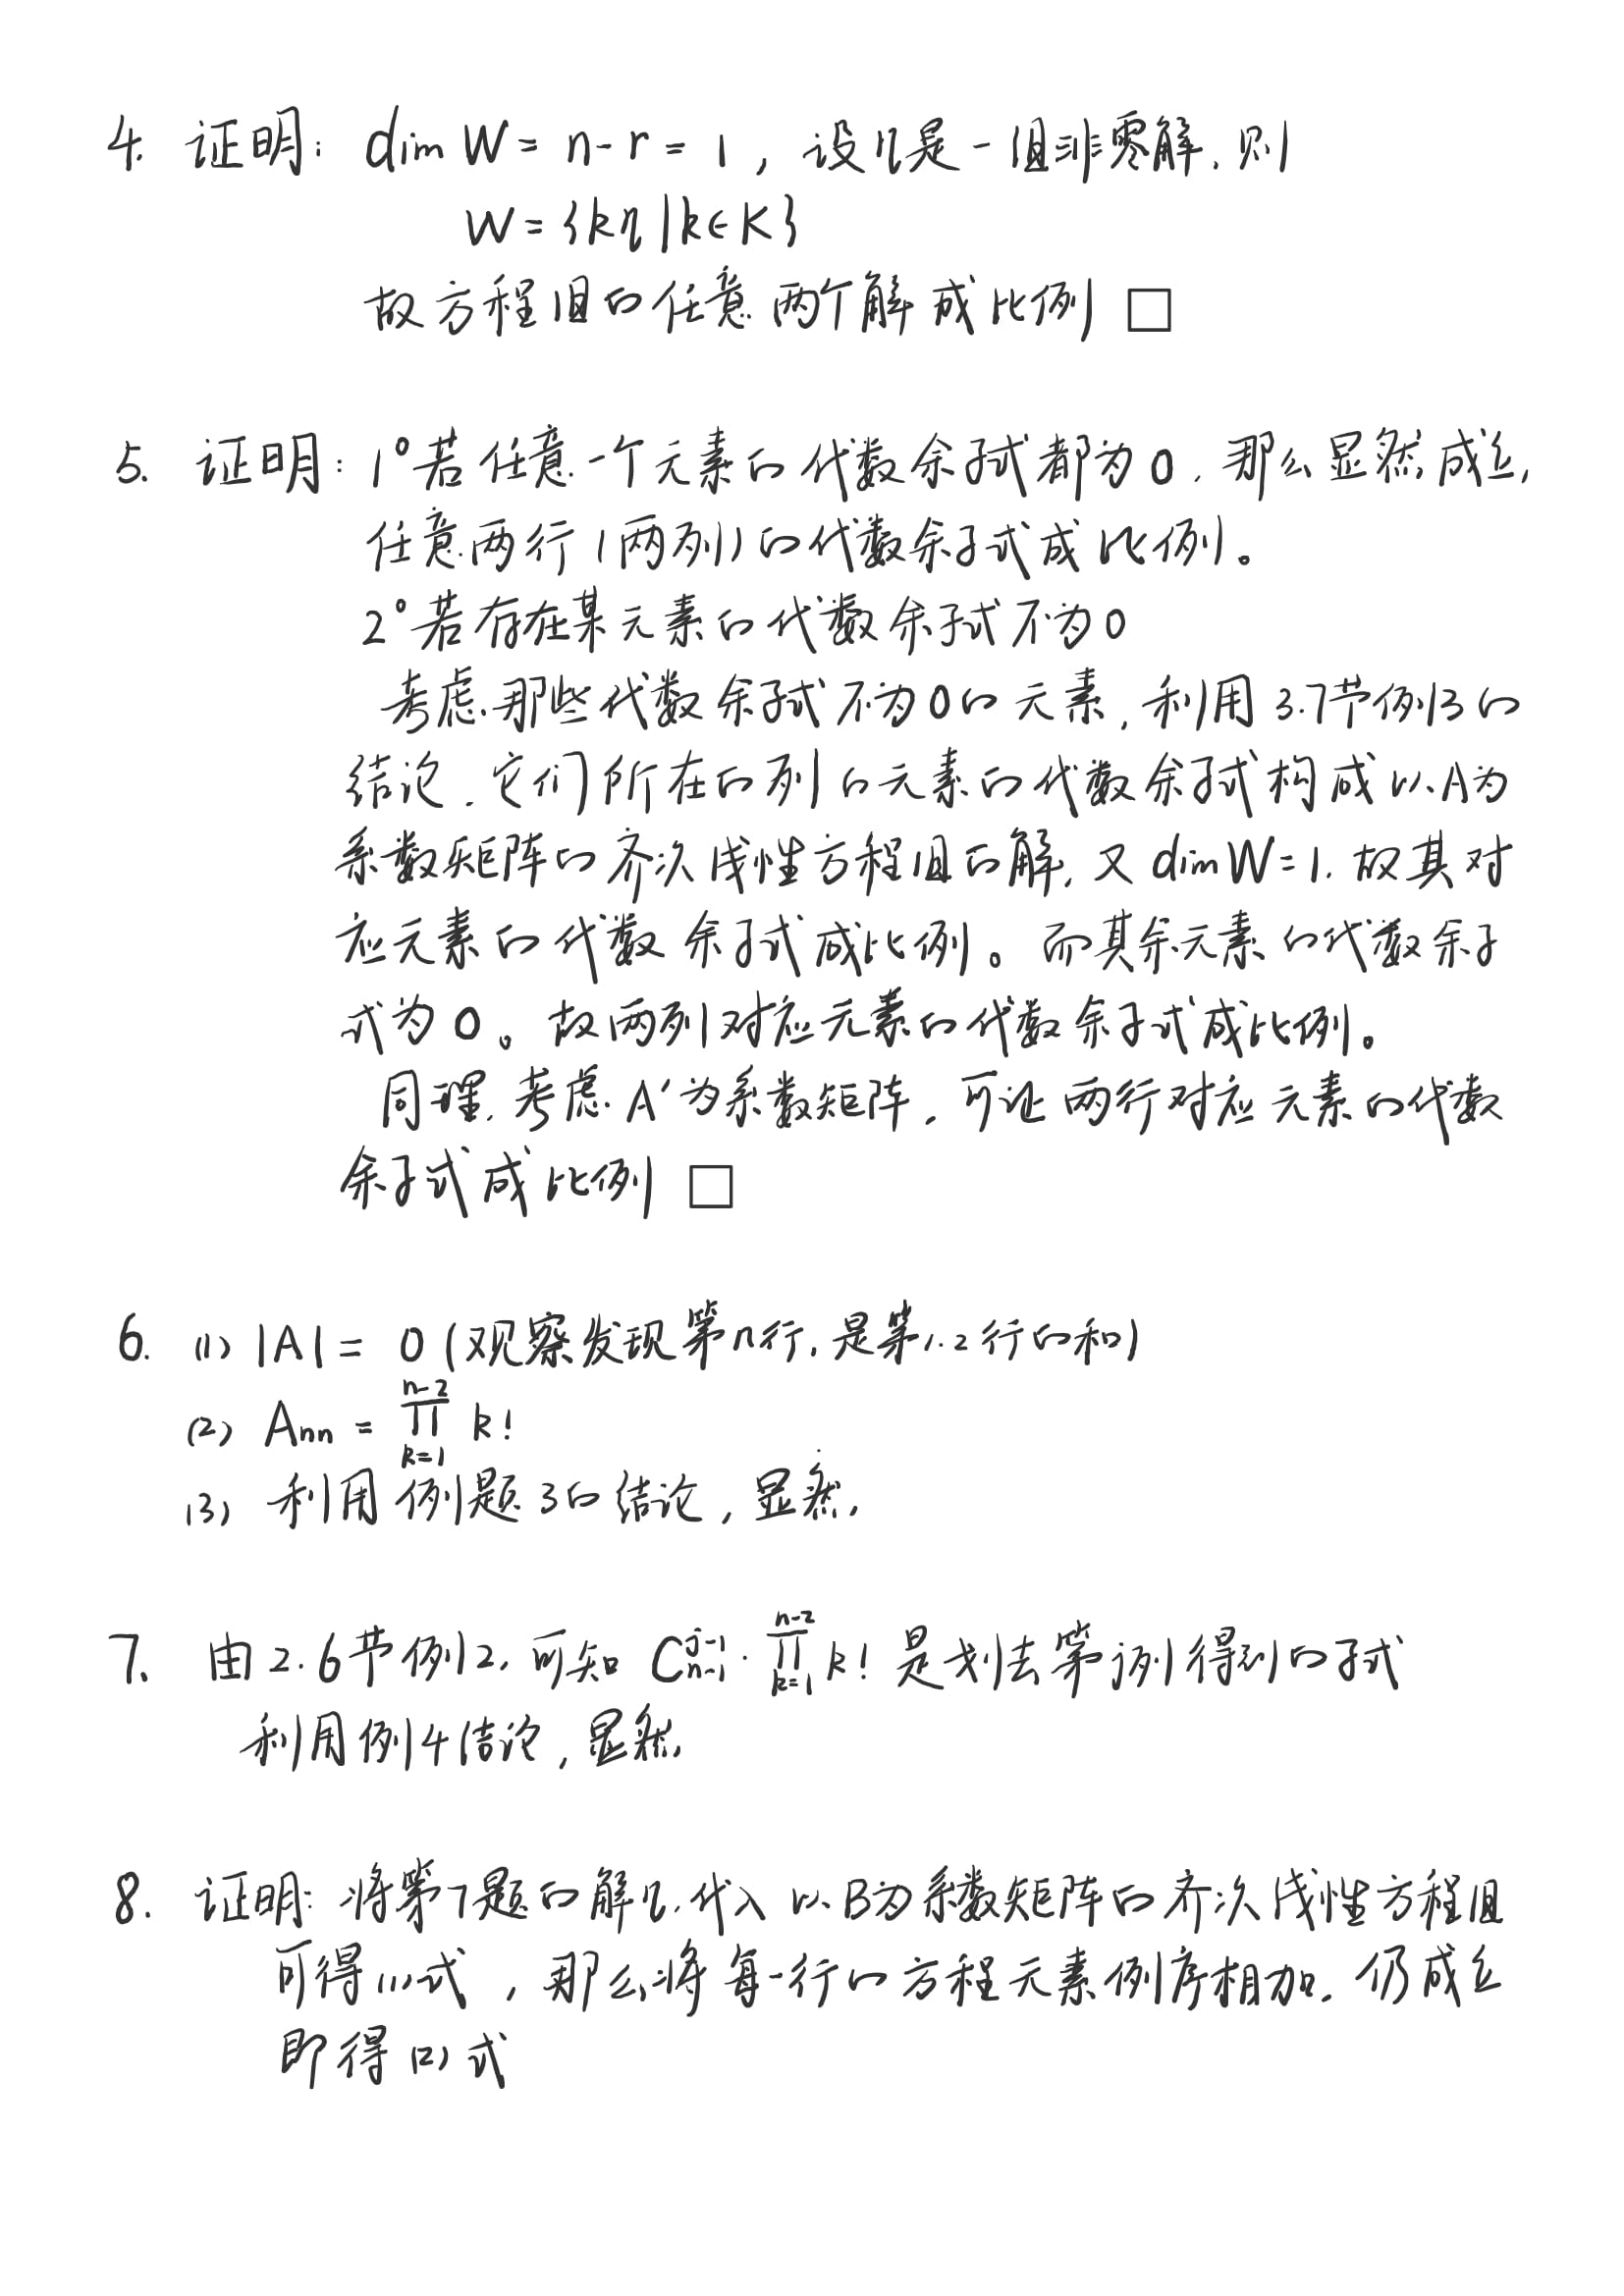 4. 证明: dim W = n-r = 1, 设η是一组非零解, 则
W = {kη|k∈K}
故方程组的任意两个解成比例 □
5. 证明: 1°若任意一个元素的代数余子式都为0, 那么显然成立,
任意两行(两列)的代数余子式成比例。
2°若存在某元素的代数余子式不为0
考虑那些代数余子式不为0的元素, 利用3.7节例3的
结论, 它们所在的列的元素的代数余子式构成以A为
系数矩阵的齐次线性方程组的解, 又dim W=1, 故其对
应元素的代数余子式成比例。而其余元素的代数余子
式为0。故两列对应元素的代数余子式成比例。
同理, 考虑A'为系数矩阵, 可证两行对应元素的代数
余子式成比例 □
6. (1) |A| = 0 (观察发现第n行, 是第1.2行的和)
(2) Aₙₙ = ∏_{k=1}^{n-2} k!
(3) 利用例题3的结论, 显然.
7. 由2.6节例12, 可知 C_{n-1}^{j-1}·∏_{k=1}^{n-2} k! 是划去第j列得到的子式
利用例4结论, 显然
8. 证明: 将第7题的解η, 代入以B为系数矩阵的齐次线性方程组
可得(1)式, 那么将每一行的方程元素例序相加, 仍成立
即得(2)式